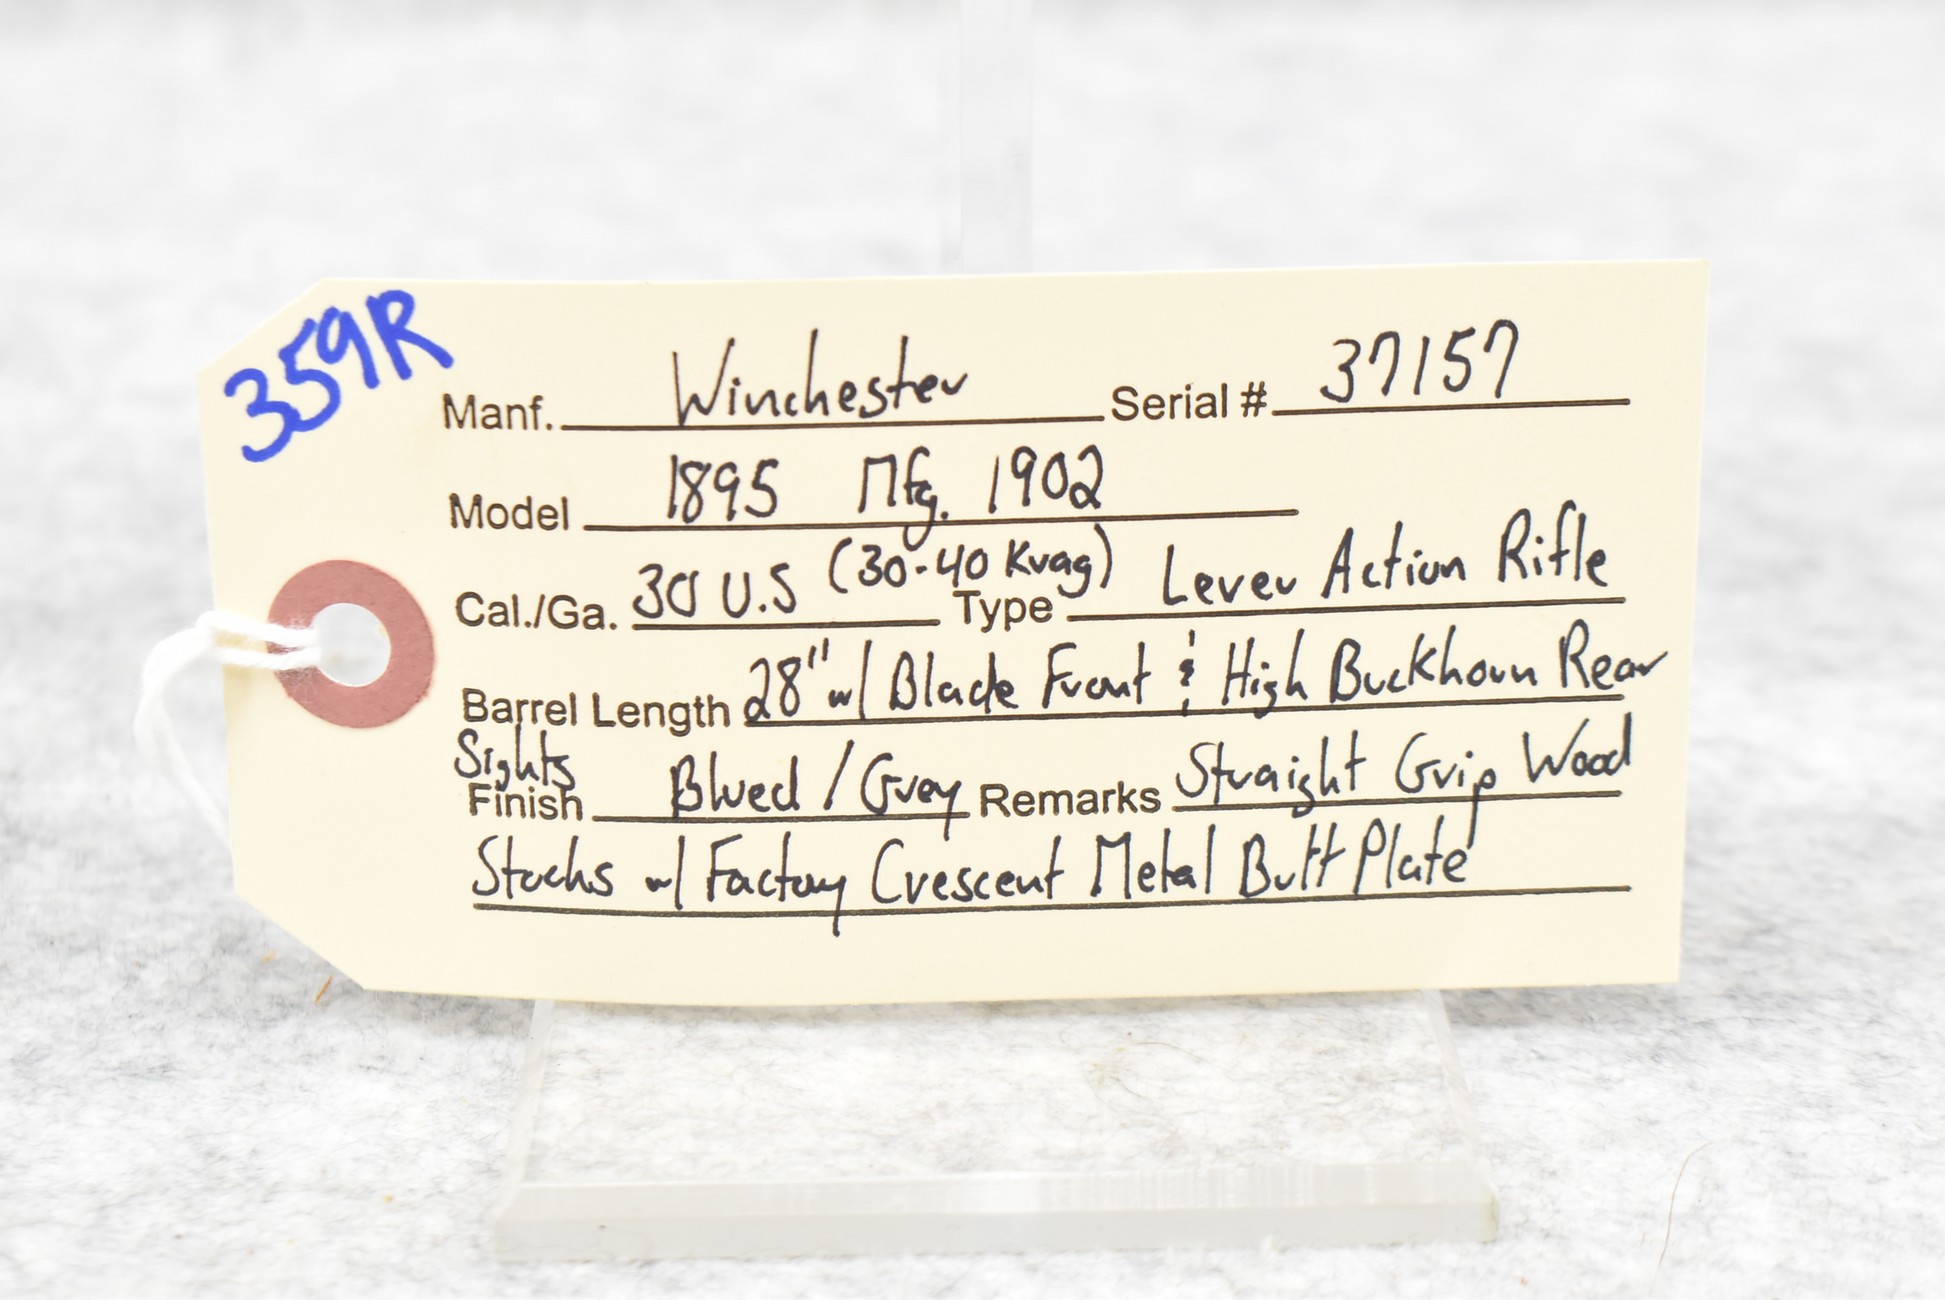 359R
Manf. Winchester Serial # 37157
Model 1895 Mfg. 1902
Cal./Ga. 30 U.S (30-40 Krag) Type Lever Action Rifle
Barrel Length 28" w/ Blade Front & High Buckhorn Rear
Sights
Finish Blued / Grey Remarks Straight Grip Wood
Stocks w/ Factory Crescent Metal Butt Plate